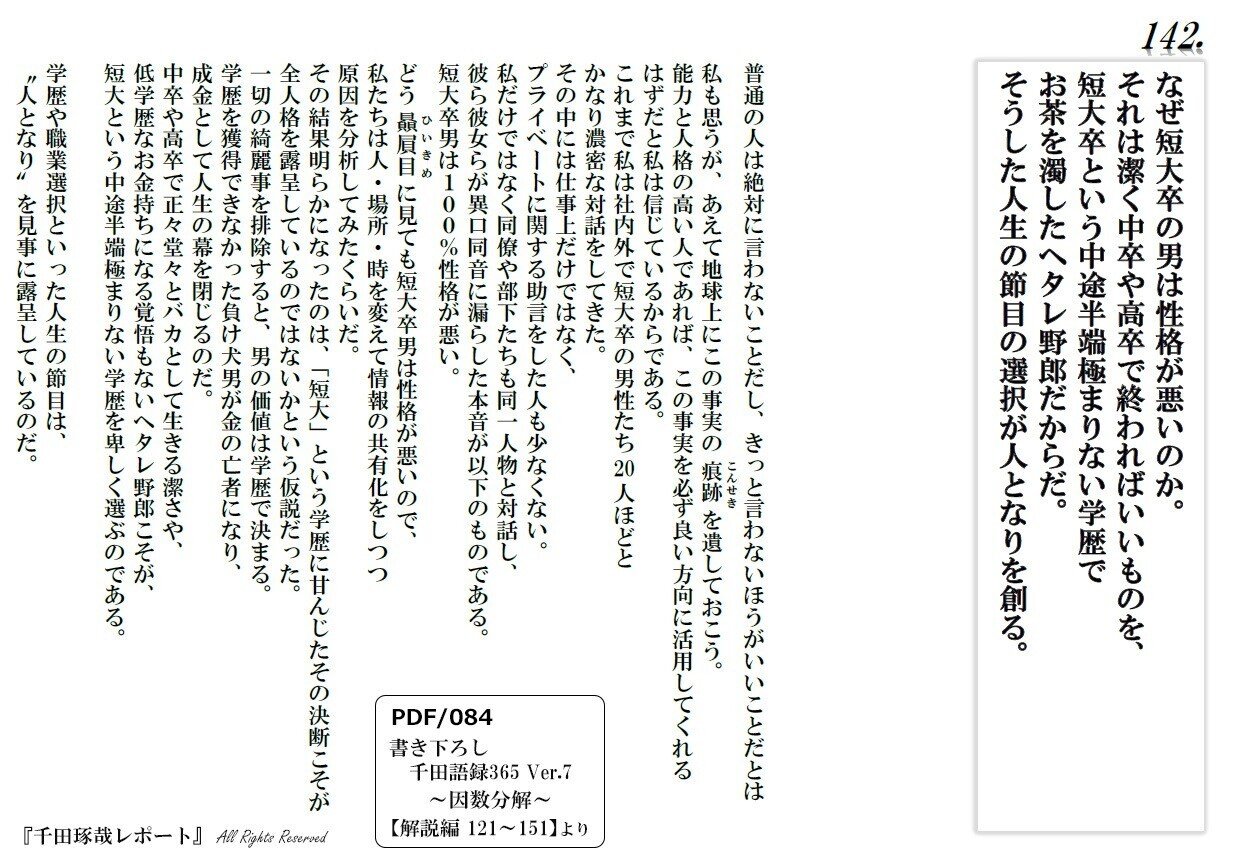 142.
なぜ短大卒の男は性格が悪いのか。
それは潔く中卒や高卒で終わればいいものを、
短大卒という中途半端極まりない学歴で
お茶を濁したヘタレ野郎だからだ。
そうした人生の節目の選択が人となりを創る。
普通の人は絶対に言わないことだし、きっと言わないほうがいいことだとは
私も思うが、あえて地球上にこの事実の痕跡を遺しておこう。
こんせき
能力と人格の高い人であれば、この事実を必ず良い方向に活用してくれる
はずだと私は信じているからである。
これまで私は社内外で短大卒の男性たち20人ほどと
かなり濃密な対話をしてきた。
その中には仕事上だけではなく、
プライベートに関する助言をした人も少なくない。
私だけではなく同僚や部下たちも同一人物と対話し、
彼ら彼女らが異口同音に漏らした本音が以下のものである。
短大卒男は100%性格が悪い。
どう贔屓目に見ても短大卒男は性格が悪いので、
ひいきめ
私たちは人・場所・時を変えて情報の共有化をしつつ
原因を分析してみたくらいだ。
その結果明らかになったのは、「短大」という学歴に甘んじたその決断こそが
全人格を露呈しているのではないかという仮説だった。
一切の綺麗事を排除すると、男の価値は学歴で決まる。
学歴を獲得できなかった負け犬男が金の亡者になり、
成金として人生の幕を閉じるのだ。
中卒や高卒で正々堂々とバカとして生きる潔さや、
低学歴なお金持ちになる覚悟もないヘタレ野郎こそが、
短大という中途半端極まりない学歴を卑しく選ぶのである。
学歴や職業選択といった人生の節目は、
〝人となり〟を見事に露呈しているのだ。
PDF/084
書き下ろし
千田語録365 Ver.7
～因数分解～
【解説編 121～151】より
『千田琢哉レポート』 All Rights Reserved